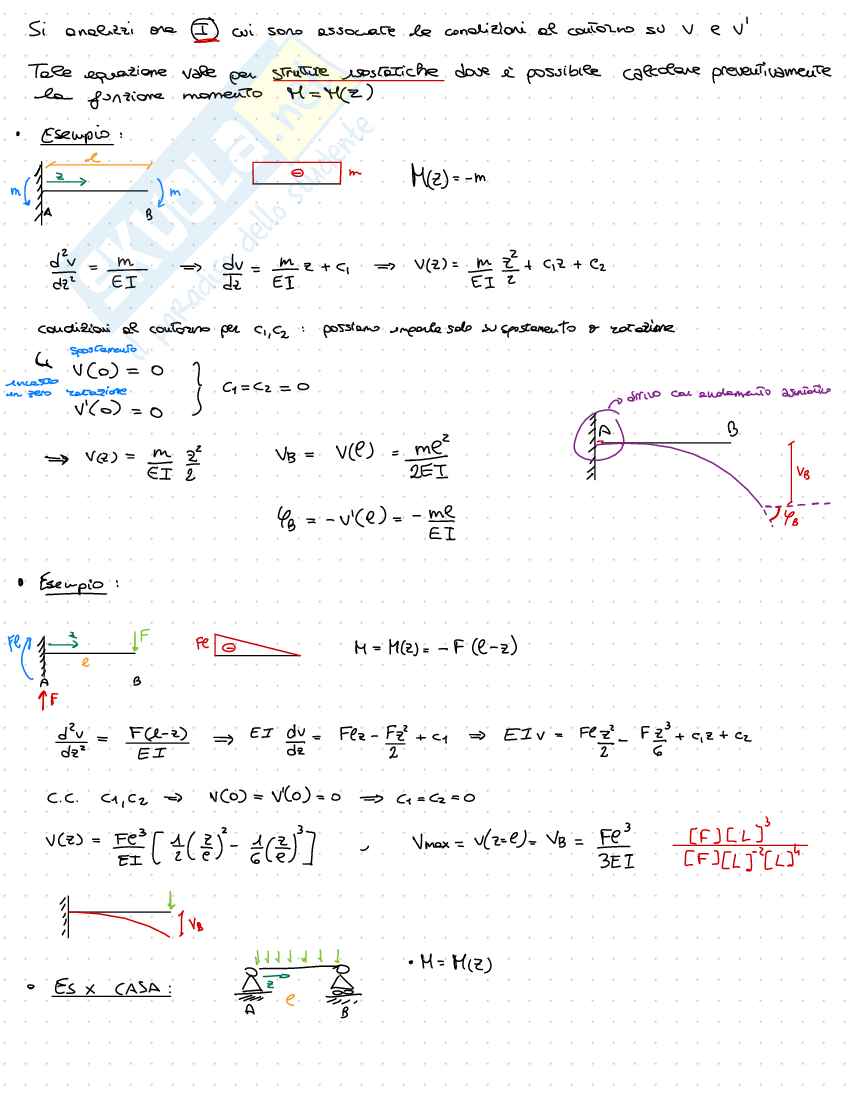 Si analizzi ora I cui sono associate le condizioni al contorno su v e v'
Tale equazione vale per strutture isostatiche dove è possibile calcolare preventivamente
la funzione momento M = M(z)
• Esempio:
l
z
m
m
A
B
⊖
m
M(z) = -m
d²v/dz² = m/EI ⇒ dv/dz = m/EI z + c₁ ⇒ v(z) = m/EI z²/2 + c₁z + c₂
condizioni al contorno per c₁, c₂ : possiamo imporle solo su spostamento o rotazione
spostamento
v(0) = 0
incastro in zero
rotazione
v'(0) = 0
} c₁ = c₂ = 0
con andamento
A
B
v_B
φ_B
⇒ v(z) = m/EI z²/2
v_B = v(l) = ml²/2EI
φ_B = -v'(l) = - ml/EI
• Esempio:
Fl
z
F
l
A
B
F
Fl
⊖
M = M(z) = -F (l-z)
d²v/dz² = F(l-z)/EI ⇒ EI dv/dz = Flz - Fz²/2 + c₁ ⇒ EIv = Fl z²/2 - F z³/6 + c₁z + c₂
C.C. c₁, c₂ ⇒ v(0) = v'(0) = 0 ⇒ c₁ = c₂ = 0
v(z) = Fl³/EI [ 1/2 (z/l)² - 1/6 (z/l)³ ] , Vmax = v(z=l) = v_B = Fl³/3EI [F][L]³/[F][L]⁻²[L]⁴
v_B
• Es x CASA:
z
l
A
B
• M = M(z)
SKUOLA.net
il paradiso dello studente